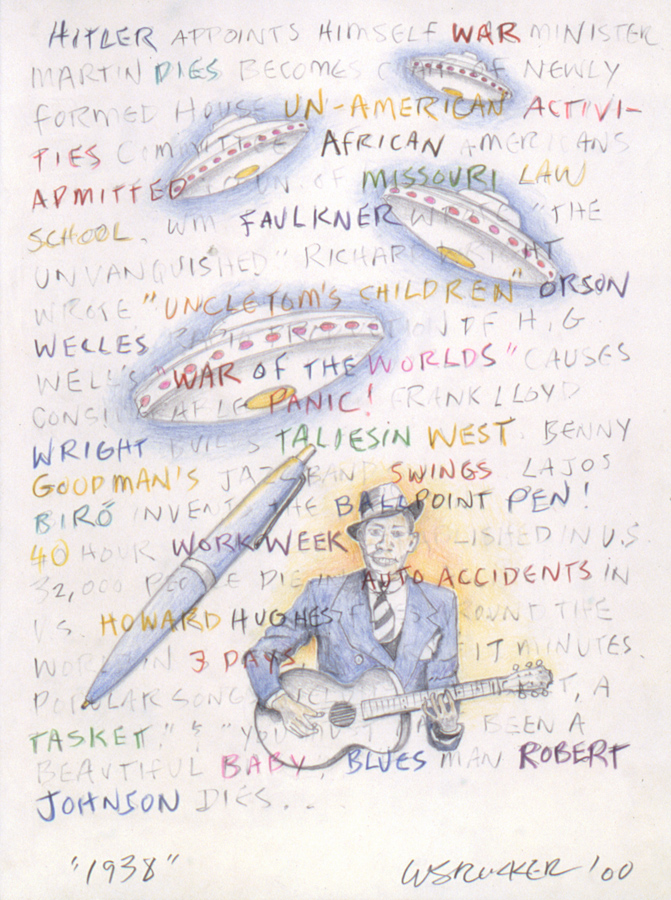 HITLER APPOINTS HIMSELF WAR MINISTER
MARTIN DIES BECOMES OF NEWLY
FORMED HOUSE UN-AMERICAN ACTIVI-
TIES COMMITTEE AFRICAN AMERICANS
ADMITTED OF MISSOURI LAW
SCHOOL. WM. FAULKNER WROTE "THE
UNVANQUISHED" RICHARD WRIGHT
WROTE "UNCLE TOM'S CHILDREN" ORSON
WELLES RADIO PRODUCTION OF H.G.
WELL'S "WAR OF THE WORLDS" CAUSES
CONSIDERABLE PANIC! FRANK LLOYD
WRIGHT BUILDS TALIESIN WEST. BENNY
GOODMAN'S JAZZ BAND SWINGS LAJOS
BIRÓ INVENTS THE BALLPOINT PEN!
40 HOUR WORK WEEK ESTABLISHED IN U.S.
32,000 PEOPLE DIE IN AUTO ACCIDENTS IN
U.S. HOWARD HUGHES FLIES AROUND THE
WORLD IN 3 DAYS, 17 MINUTES.
POPULAR SONGS A
TASKET." & "YOU MUST HAVE BEEN A
BEAUTIFUL BABY, BLUES MAN ROBERT
JOHNSON DIES...
"1938" WSRUCKER '00